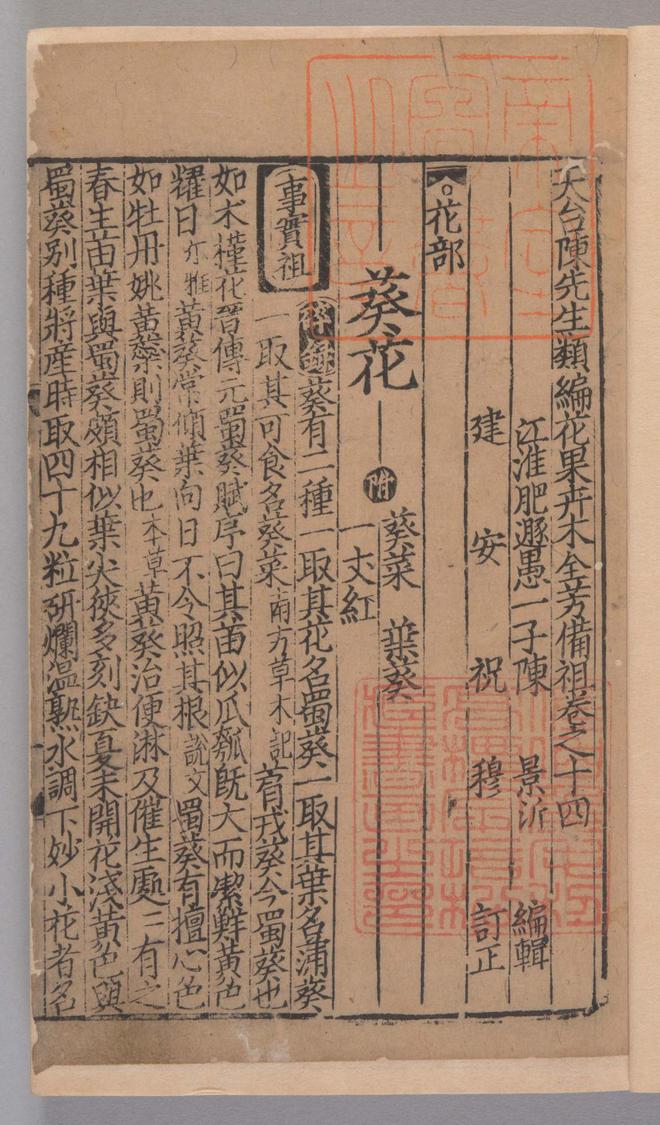 天台陳先生類編花果卉木全芳備祖卷之十四
江淮肥遯愚一子陳 景沂 編輯
建安 祝 穆 訂正
花部
葵花 附 葵菜 葉葵
一丈紅
事實祖
碎錄 葵有二種一取其花名蜀葵一取其葉名蒲葵
一取其可食名葵菜南方草木記 有戎葵今蜀葵也
如木槿花晉傅元蜀葵賦序曰其苗似瓜瓠旣大而
黃色
耀日尓雅 黃葵常傾葉向日不令照其根說文 蜀葵有擅心色
如牡丹姚黃蘂則蜀葵也本草 黃葵治便淋及催生處々有之
春生苗葉與蜀葵頗相似葉尖狹多刻缺夏末開花淺黃色與
蜀葵别種將產時取四十九粒研爛溫熟水調下妙小花者名